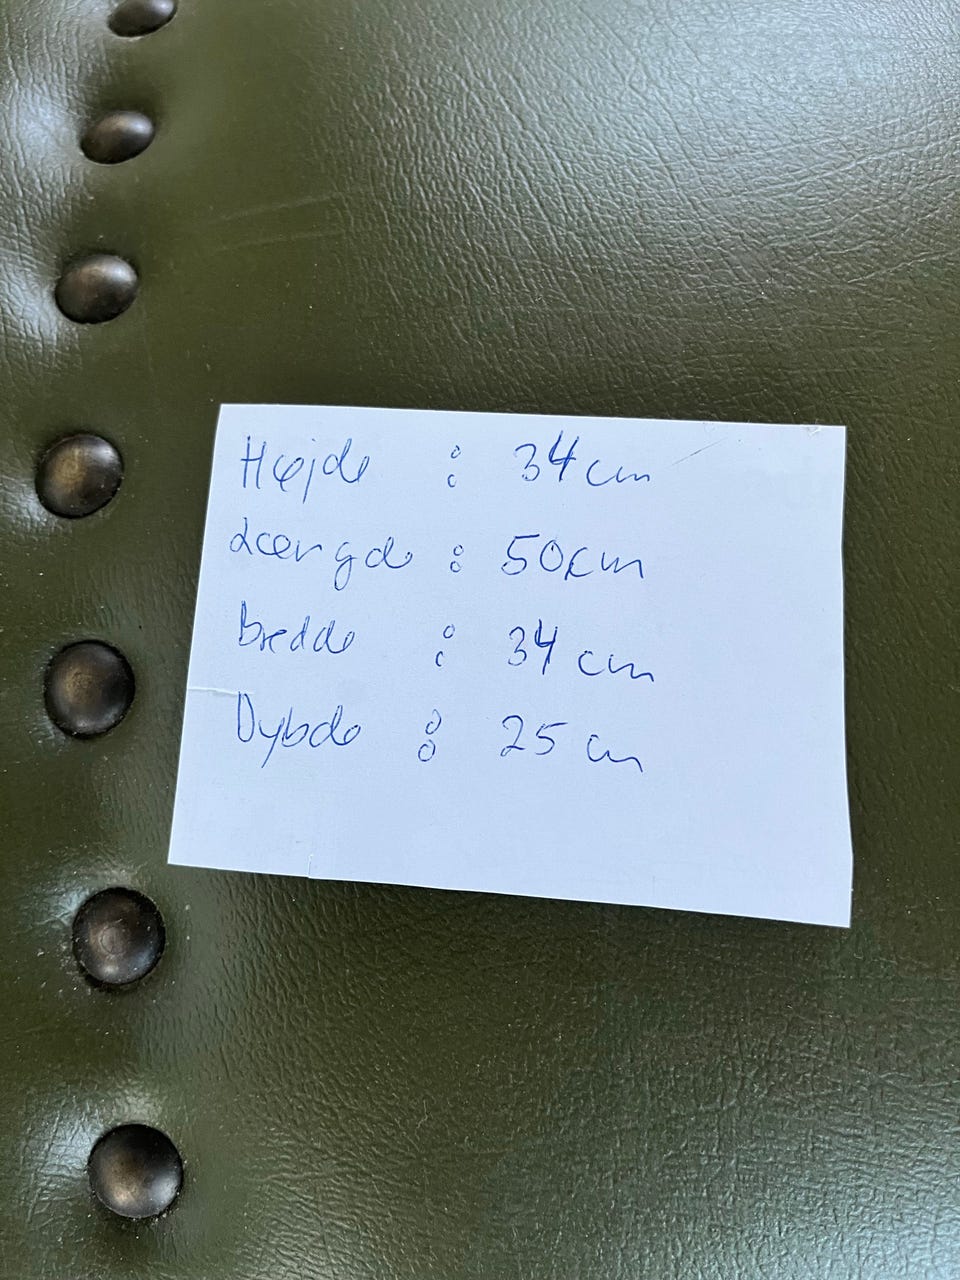 Højde : 34 cm
Længde : 50 cm
bredde : 34 cm
Dybde : 25 cm